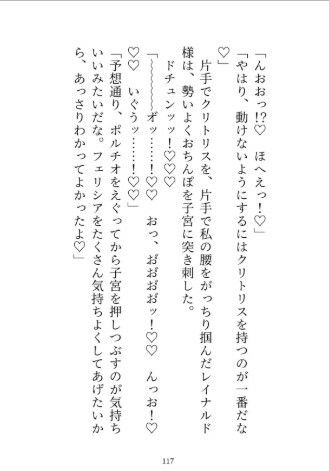 「んおおっ!?♡　ほへえっ!♡」
「やはり、動けないようにするにはクリトリスを持つのが一番だな
♡」
　片手でクリトリスを、片手で私の腰をがっちり掴んだレイナルド
様は、勢いよくおちんぽを子宮に突き刺した。
　ドチュンッッ!♡♡♡
「～～～～ォ゙ッ……!♡♡　おっ、お゙お゙お゙お゙ッ!♡♡　んっお!♡
♡♡　いぐうッ……!♡♡」
「予想通り、ポルチオをえぐってから子宮を押しつぶすのが気持ち
いいみたいだな。フェリシアをたくさん気持ちよくしてあげたいか
ら、あっさりわかってよかったよ♡」
117